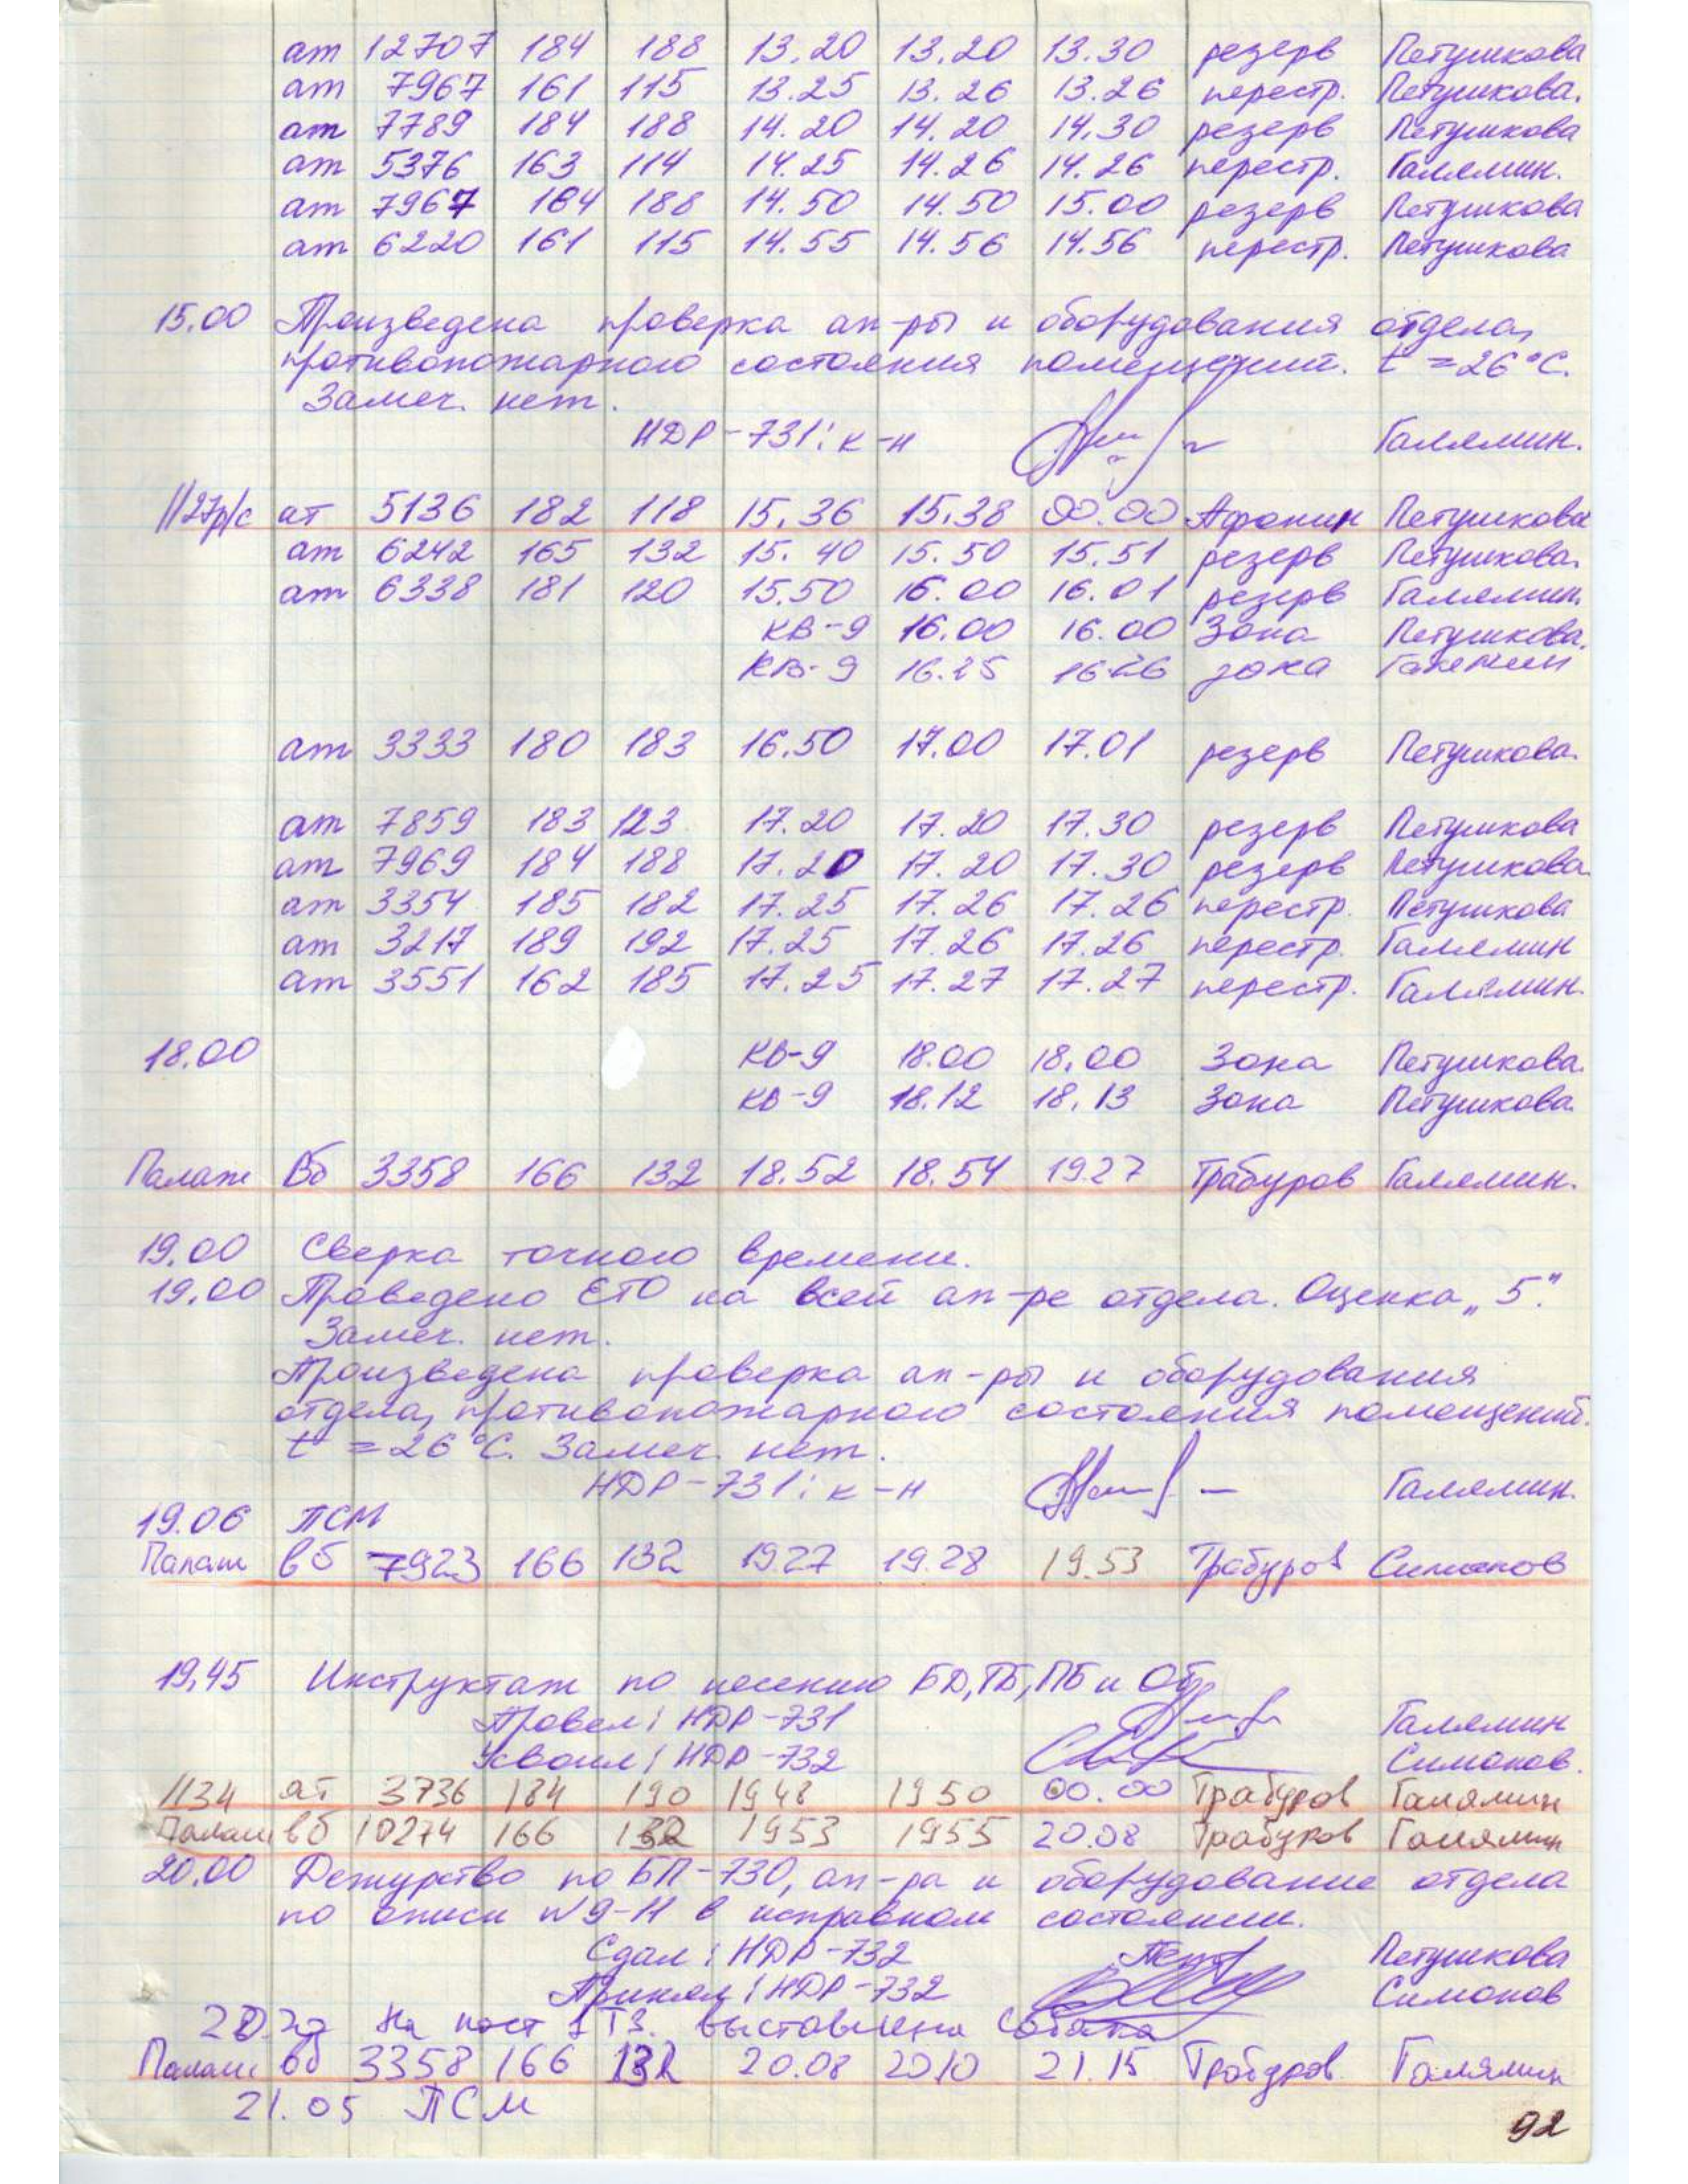 ат 12707 184 188 13.20 13.20 13.30 резерв Петушкова
ат 7967 161 115 13.25 13.26 13.26 перестр. Петушкова.
ат 7789 184 188 14.20 14.20 14.30 резерв Петушкова
ат 5376 163 114 14.25 14.26 14.26 перестр. Галямин.
ат 7967 184 188 14.50 14.50 15.00 резерв Петушкова
ат 6220 161 115 14.55 14.56 14.56 перестр. Петушкова
15.00 Произведена проверка ап-ры и оборудования отдела,
противопожарного состояния помещений. t = 26°С.
Замеч. нет.
НДР-731: к-н Галямин.
1127р/с ат 5136 182 118 15.36 15.38 00.00 Афонин Петушкова
ат 6242 165 132 15.40 15.50 15.51 резерв Петушкова.
ат 6338 181 120 15.50 16.00 16.01 резерв Галямин.
КВ-9 16.00 16.00 Зона Петушкова.
КВ-9 16.25 16.26 зона Галямин
ат 3333 180 183 16.50 17.00 17.01 резерв Петушкова.
ат 7859 183 123 17.20 17.20 17.30 резерв Петушкова
ат 7969 184 188 17.20 17.20 17.30 резерв Петушкова.
ат 3354 185 182 17.25 17.26 17.26 перестр. Петушкова
ат 3217 189 192 17.25 17.26 17.26 перестр. Галямин
ат 3551 162 185 17.25 17.27 17.27 перестр. Галямин.
18.00 КВ-9 18.00 18.00 Зона Петушкова.
КВ-9 18.12 18.13 Зона Петушкова.
Палаш Вб 3358 166 132 18.52 18.54 19.27 Трабуров Галямин.
19.00 Сверка точного времени.
19.00 Проведено ЕТО на всей ап-ре отдела. Оценка „5".
Замеч. нет.
Произведена проверка ап-ры и оборудования
отдела, противопожарного состояния помещений.
t = 26°С. Замеч. нет.
НДР-731: к-н Галямин.
19.06 ПСМ
Палаш вб 7923 166 132 1927 19.28 19.53 Трабуров Симонов
19.45 Инструктаж по несению БД, ТБ, ПБ и ОВ
Провел: НДР-731 Галямин
Усвоил: НДР-732 Симонов.
1134 ат 3736 184 190 1948 1950 00.00 Трабуров Галямин
Палаш вб 10274 166 132 1953 1955 20.08 Трабуров Галямин
20.00 Дежурство по БП-730, ап-ра и оборудование отдела
по описи №9-Н в исправном состоянии.
Сдал: НДР-732 Петушкова
Принял: НДР-732 Симонов
На пост 1 ТЗ. выставлена собака
Палаш вб 3358 166 132 20.08 2010 21.15 Трабуров. Галямин
21.05 ПСМ
92